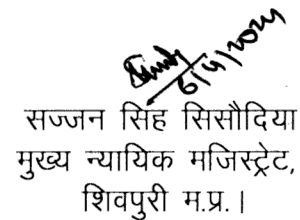 6/4/2024
सज्जन सिंह सिसौदिया
मुख्य न्यायिक मजिस्ट्रेट,
शिवपुरी म.प्र.।